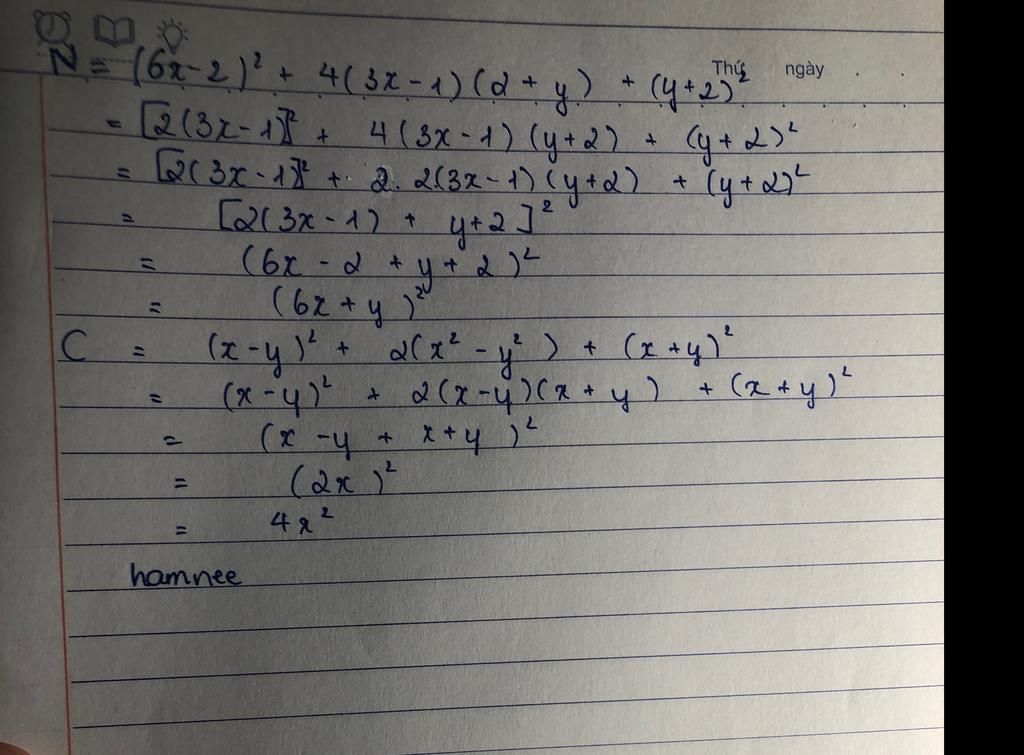 Thứ ngày . .
N = (6x-2)² + 4(3x-1)(2+y) + (y+2)²
= [2(3x-1)]² + 4(3x-1)(y+2) + (y+2)²
= [2(3x-1)]² + 2.2(3x-1)(y+2) + (y+2)²
= [2(3x-1) + y+2]²
= (6x-2+y+2)²
= (6x+y)²
C = (x-y)² + 2(x²-y²) + (x+y)²
= (x-y)² + 2(x-y)(x+y) + (x+y)²
= (x-y + x+y)²
= (2x)²
= 4x²
hamnee